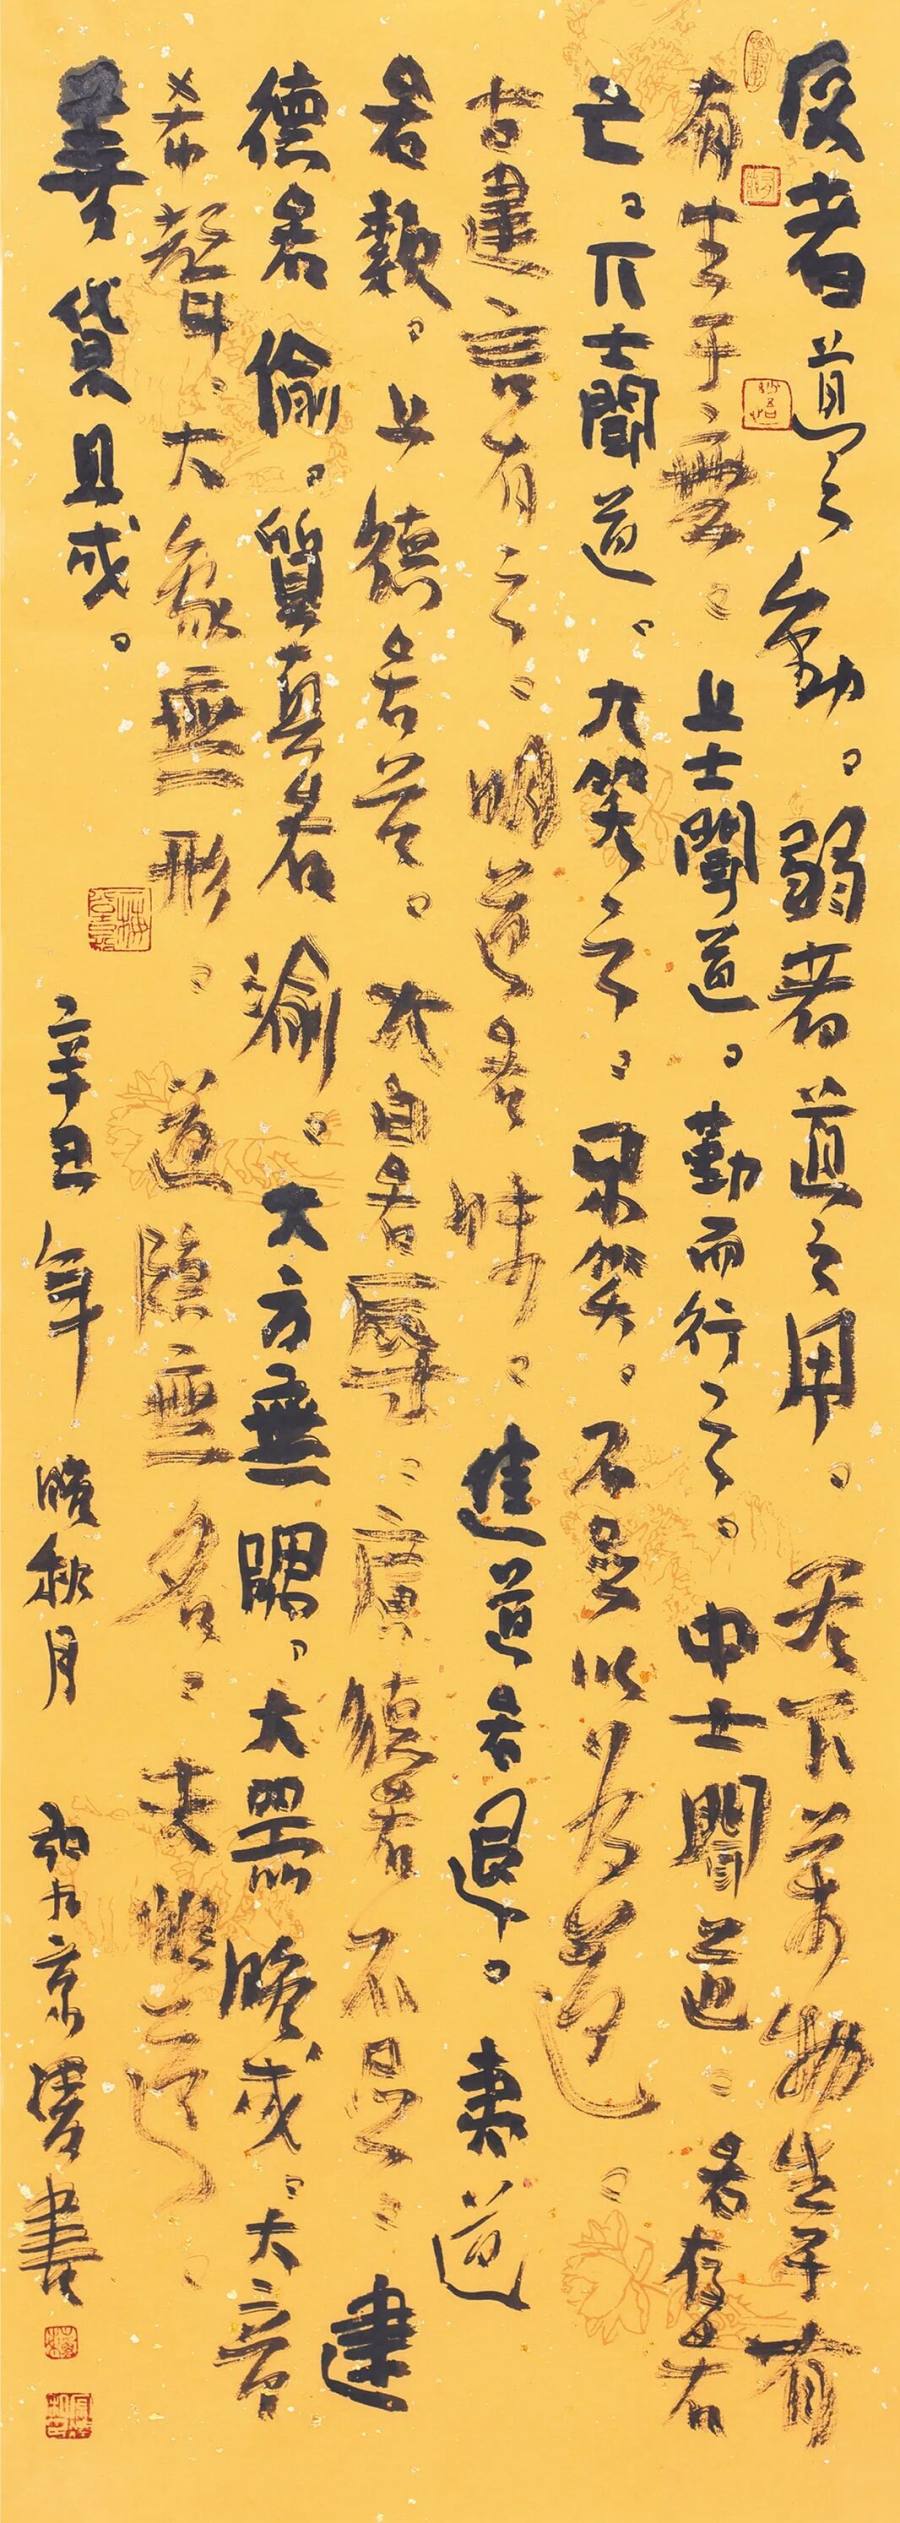 反者道之動。弱者道之用。天下萬物生于有
有生于無。上士聞道。勤而行之。中士聞道。若存若
亡。下士聞道。大笑之。不笑。不足以為道。
古建言有之。明道若昧。進道若退。夷道
若纇。上德若谷。大白若辱。廣德若不足。建
德若偷。質真若渝。大方無隅。大器晚成。大音
希聲。大象無形。道隱無名。夫唯道。
善貸且成。
辛丑年 秋月 京 書